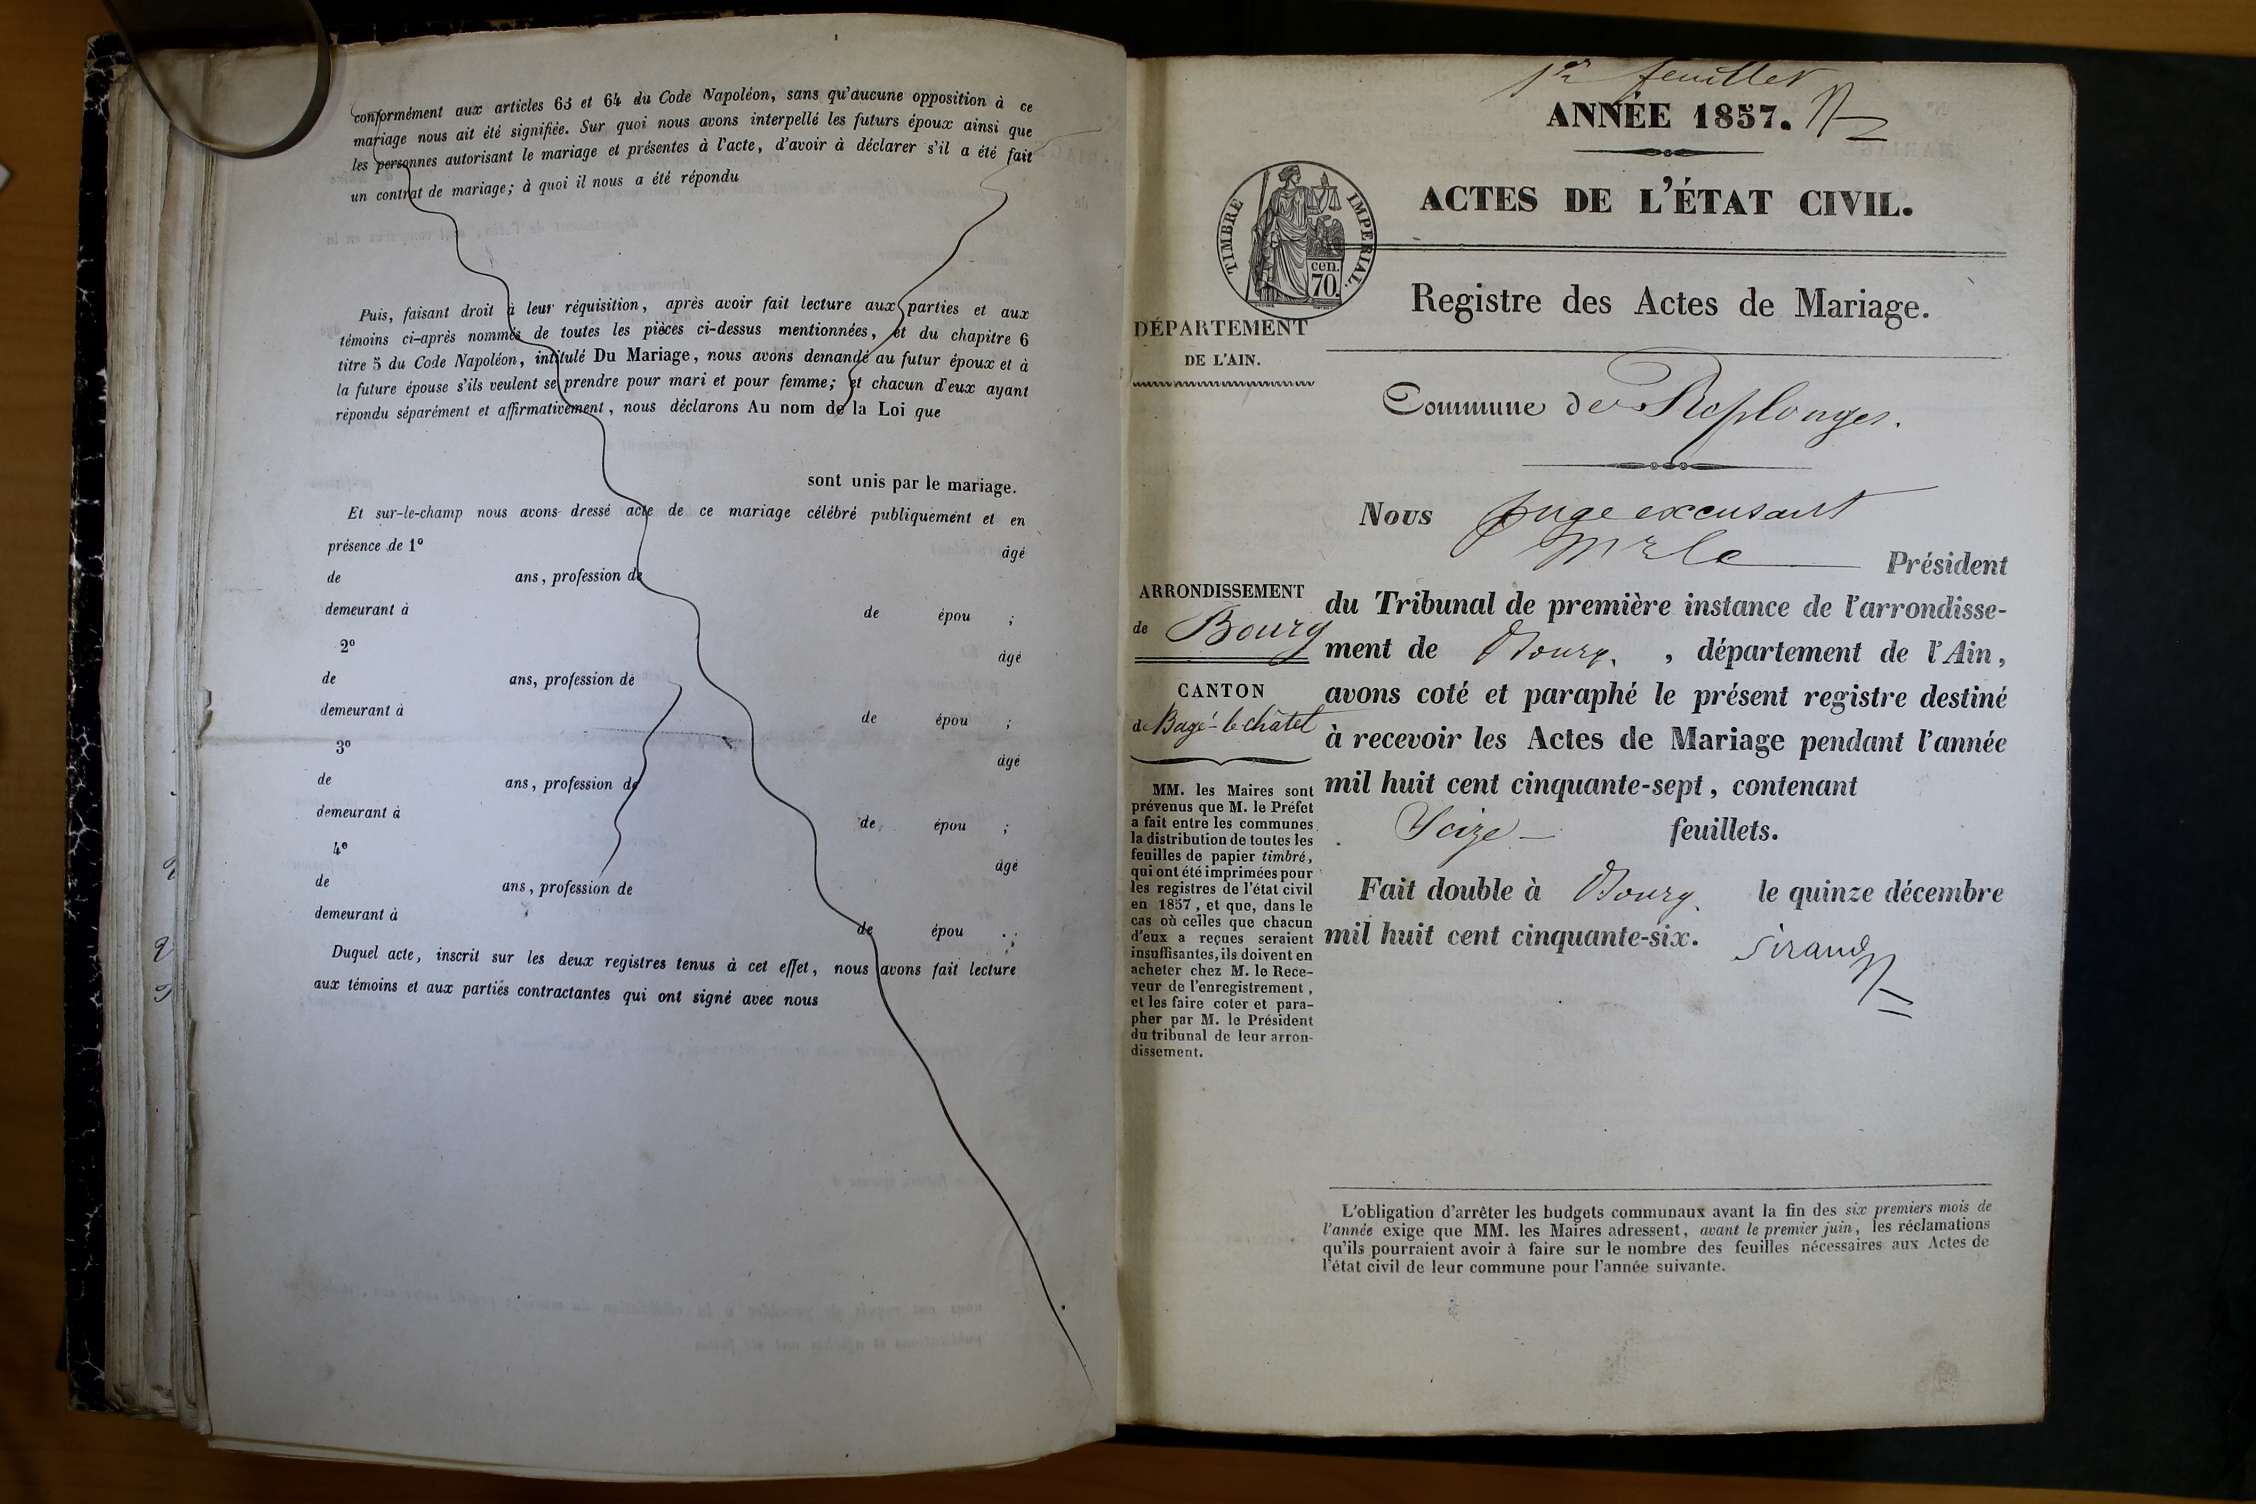 conformément aux articles 63 et 64 du Code Napoléon, sans qu'aucune opposition à ce
mariage nous ait été signifiée. Sur quoi nous avons interpellé les futurs époux ainsi que
les personnes autorisant le mariage et présentes à l'acte, d'avoir à déclarer s'il a été fait
un contrat de mariage; à quoi il nous a été répondu
Puis, faisant droit à leur réquisition, après avoir fait lecture aux parties et aux
témoins ci-après nommés de toutes les pièces ci-dessus mentionnées, et du chapitre 6
titre 5 du Code Napoléon, intitulé Du Mariage, nous avons demandé au futur époux et à
la future épouse s'ils veulent se prendre pour mari et pour femme; et chacun d'eux ayant
répondu séparément et affirmativement, nous déclarons Au nom de la Loi que
sont unis par le mariage.
Et sur-le-champ nous avons dressé acte de ce mariage célébré publiquement et en
présence de 1º âgé
de ans, profession de
demeurant à de épou ;
2º âgé
de ans, profession de
demeurant à de épou ;
3º âgé
de ans, profession de
demeurant à de épou ;
4º âgé
de ans, profession de
demeurant à de épou .;
Duquel acte, inscrit sur les deux registres tenus à cet effet, nous avons fait lecture
aux témoins et aux parties contractantes qui ont signé avec nous
1er feuillet
ANNÉE 1857.
ACTES DE L'ÉTAT CIVIL.
TIMBRE IMPERIAL.
cen.
70.
Registre des Actes de Mariage.
DÉPARTEMENT
DE L'AIN.
Commune de Replonges.
Nous Juge excusant
Mr le Président
du Tribunal de première instance de l'arrondisse-
ment de Bourg. , département de l'Ain,
avons coté et paraphé le présent registre destiné
à recevoir les Actes de Mariage pendant l'année
mil huit cent cinquante-sept, contenant
Seize feuillets.
Fait double à Bourg. le quinze décembre
mil huit cent cinquante-six.
Sirand
ARRONDISSEMENT
de Bourg
CANTON
de Bagé-le-châtel
MM. les Maires sont
prévenus que M. le Préfet
a fait entre les communes
la distribution de toutes les
feuilles de papier timbré,
qui ont été imprimées pour
les registres de l'état civil
en 1857, et que, dans le
cas où celles que chacun
d'eux a reçues seraient
insuffisantes, ils doivent en
acheter chez M. le Rece-
veur de l'enregistrement,
et les faire coter et para-
pher par M. le Président
du tribunal de leur arron-
dissement.
L'obligation d'arrêter les budgets communaux avant la fin des six premiers mois de
l'année exige que MM. les Maires adressent, avant le premier juin, les réclamations
qu'ils pourraient avoir à faire sur le nombre des feuilles nécessaires aux Actes de
l'état civil de leur commune pour l'année suivante.